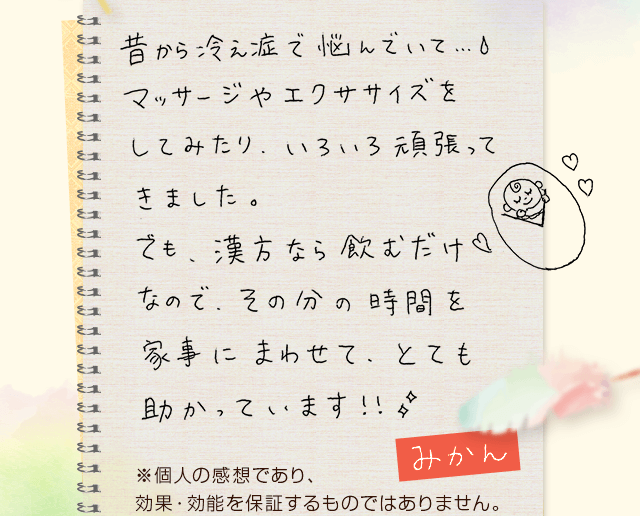 昔から冷え症で悩んでいて…
マッサージやエクササイズを
してみたり、いろいろ頑張って
きました。
でも、漢方なら飲むだけ♡
なので、その分の時間を
家事にまわせて、とても
助かっています!!
みかん
※個人の感想であり、
効果・効能を保証するものではありません。